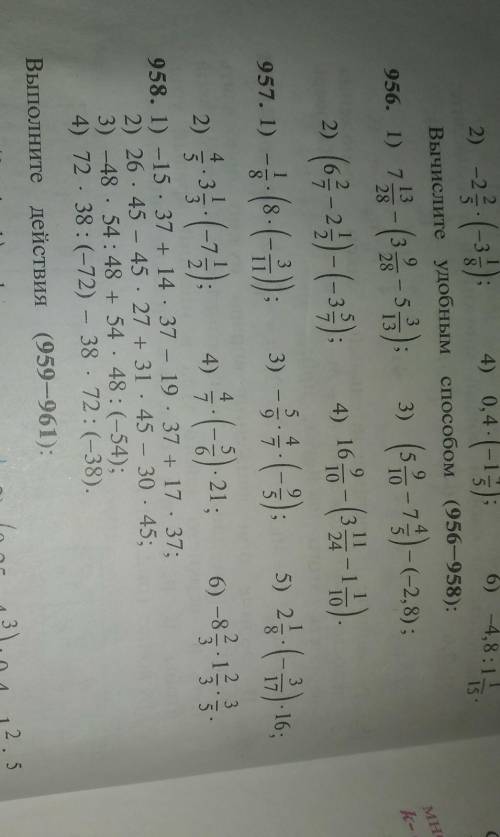 2) −2 2/5 · (−3 1/8); 4) 0,4 · (−1 4/5); 6) −4,8 : 1 1/15.
Вычислите удобным способом (956–958):
956. 1) 7 13/28 − (3 9/28 − 5 3/13); 3) (5 9/10 − 7 4/5) − (−2,8);
2) (6 2/7 − 2 1/2) − (−3 5/7); 4) 16 9/10 − (3 11/24 − 1 1/10).
957. 1) −1/8 · (8 · (−3/11)); 3) −5/9 · 4/7 · (−9/5); 5) 2 1/8 · (−3/17) · 16;
2) 4/5 · 3 1/3 · (−7 1/2); 4) 4/7 · (−5/6) · 21; 6) −8 2/3 · 1 2/3 · 3/5.
958. 1) −15 · 37 + 14 · 37 − 19 · 37 + 17 · 37;
2) 26 · 45 − 45 · 27 + 31 · 45 − 30 · 45;
3) −48 · 54 : 48 + 54 · 48 : (−54);
4) 72 · 38 : (−72) − 38 · 72 : (−38).
Выполните действия (959–961):